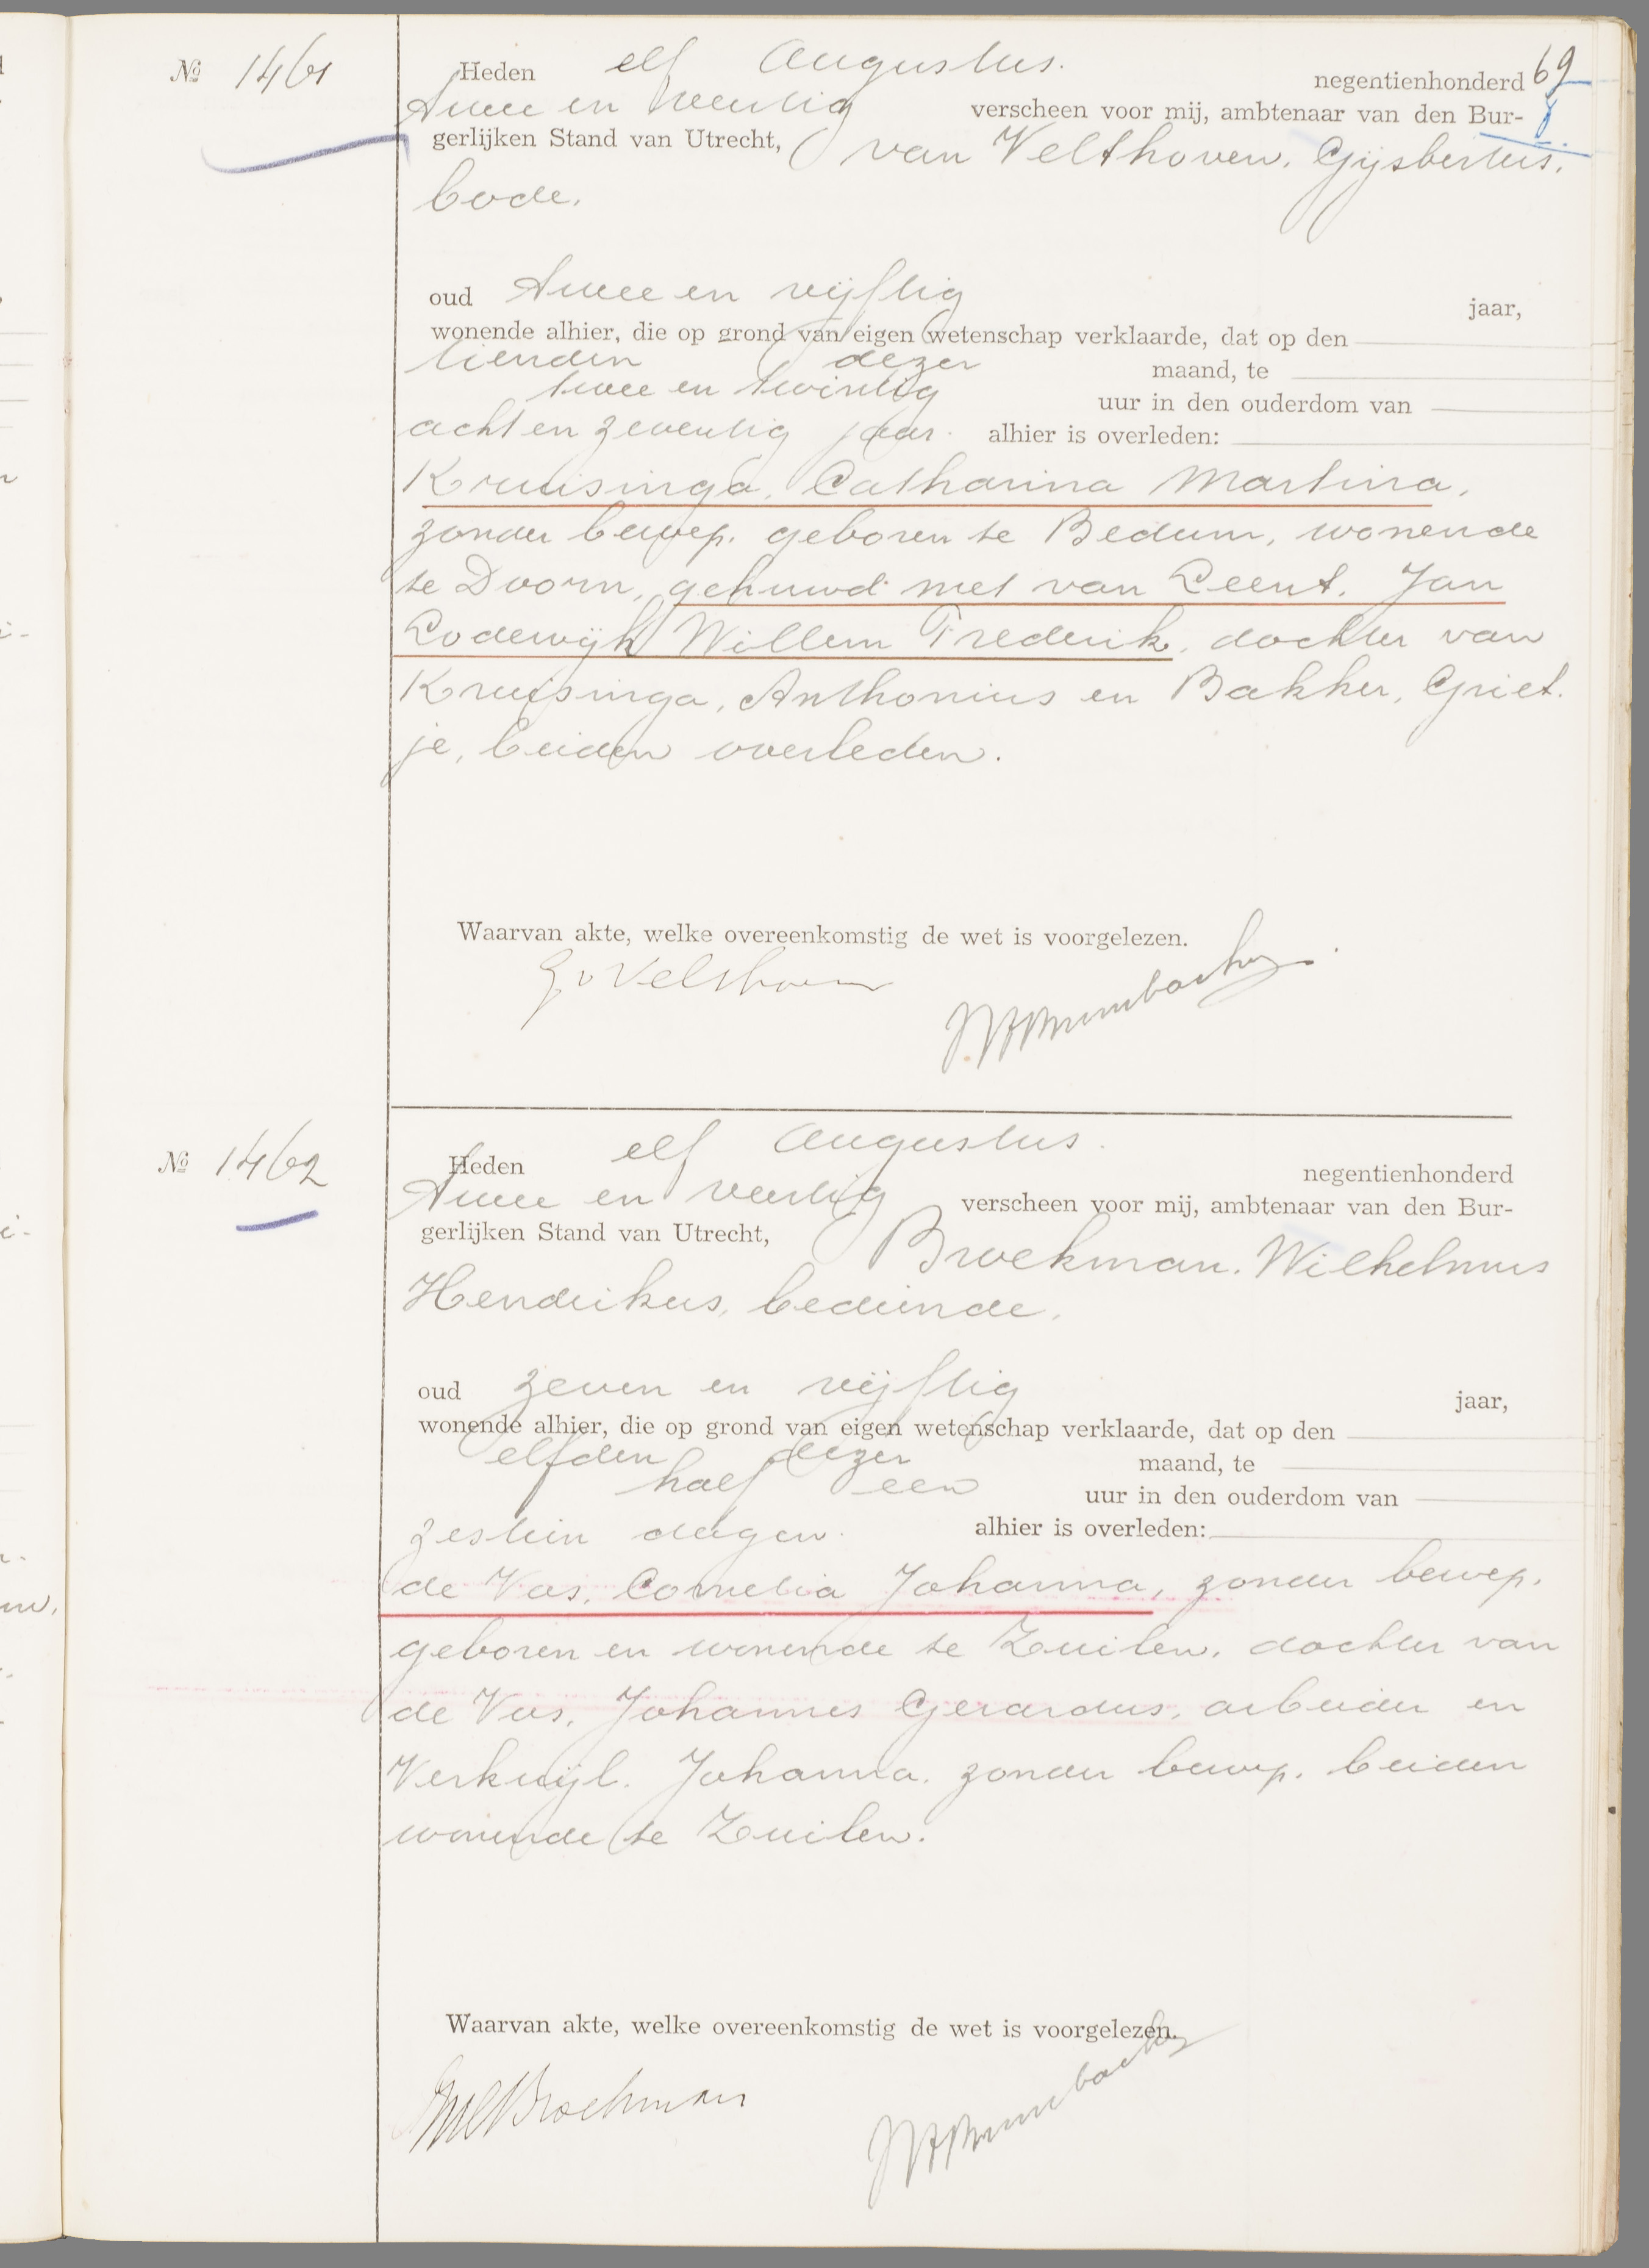 № 1461
69
Heden elf Augustus. negentienhonderd
twee en veertig verscheen voor mij, ambtenaar van den Bur-
gerlijken Stand van Utrecht, van Velthoven, Gijsbertus,
bode,
oud twee en vijftig jaar,
wonende alhier, die op grond van eigen wetenschap verklaarde, dat op den
tienden dezer maand, te
twee en twintig uur in den ouderdom van
acht en zeventig jaar. alhier is overleden:
Kruisinga, Catharina Martina,
zonder beroep, geboren te Bedum, wonende
te Doorn, gehuwd met van Leent, Jan
Lodewijk Willem Frederik, dochter van
Kruisinga, Anthonius en Bakker, Griet-
je, beiden overleden.
Waarvan akte, welke overeenkomstig de wet is voorgelezen.
G v Velthoven
№ 1462
Heden elf Augustus. negentienhonderd
twee en veertig verscheen voor mij, ambtenaar van den Bur-
gerlijken Stand van Utrecht, Broekman, Wilhelmus
Hendrikus, bediende,
oud zeven en vijftig jaar,
wonende alhier, die op grond van eigen wetenschap verklaarde, dat op den
elfden dezer maand, te
half een uur in den ouderdom van
zestien dagen. alhier is overleden:
de Vos, Cornelia Johanna, zonder beroep,
geboren en wonende te Zuilen, dochter van
de Vos, Johannes Gerardus, arbeider en
Verkuijl, Johanna, zonder beroep, beiden
wonende te Zuilen.
Waarvan akte, welke overeenkomstig de wet is voorgelezen.
Broekman